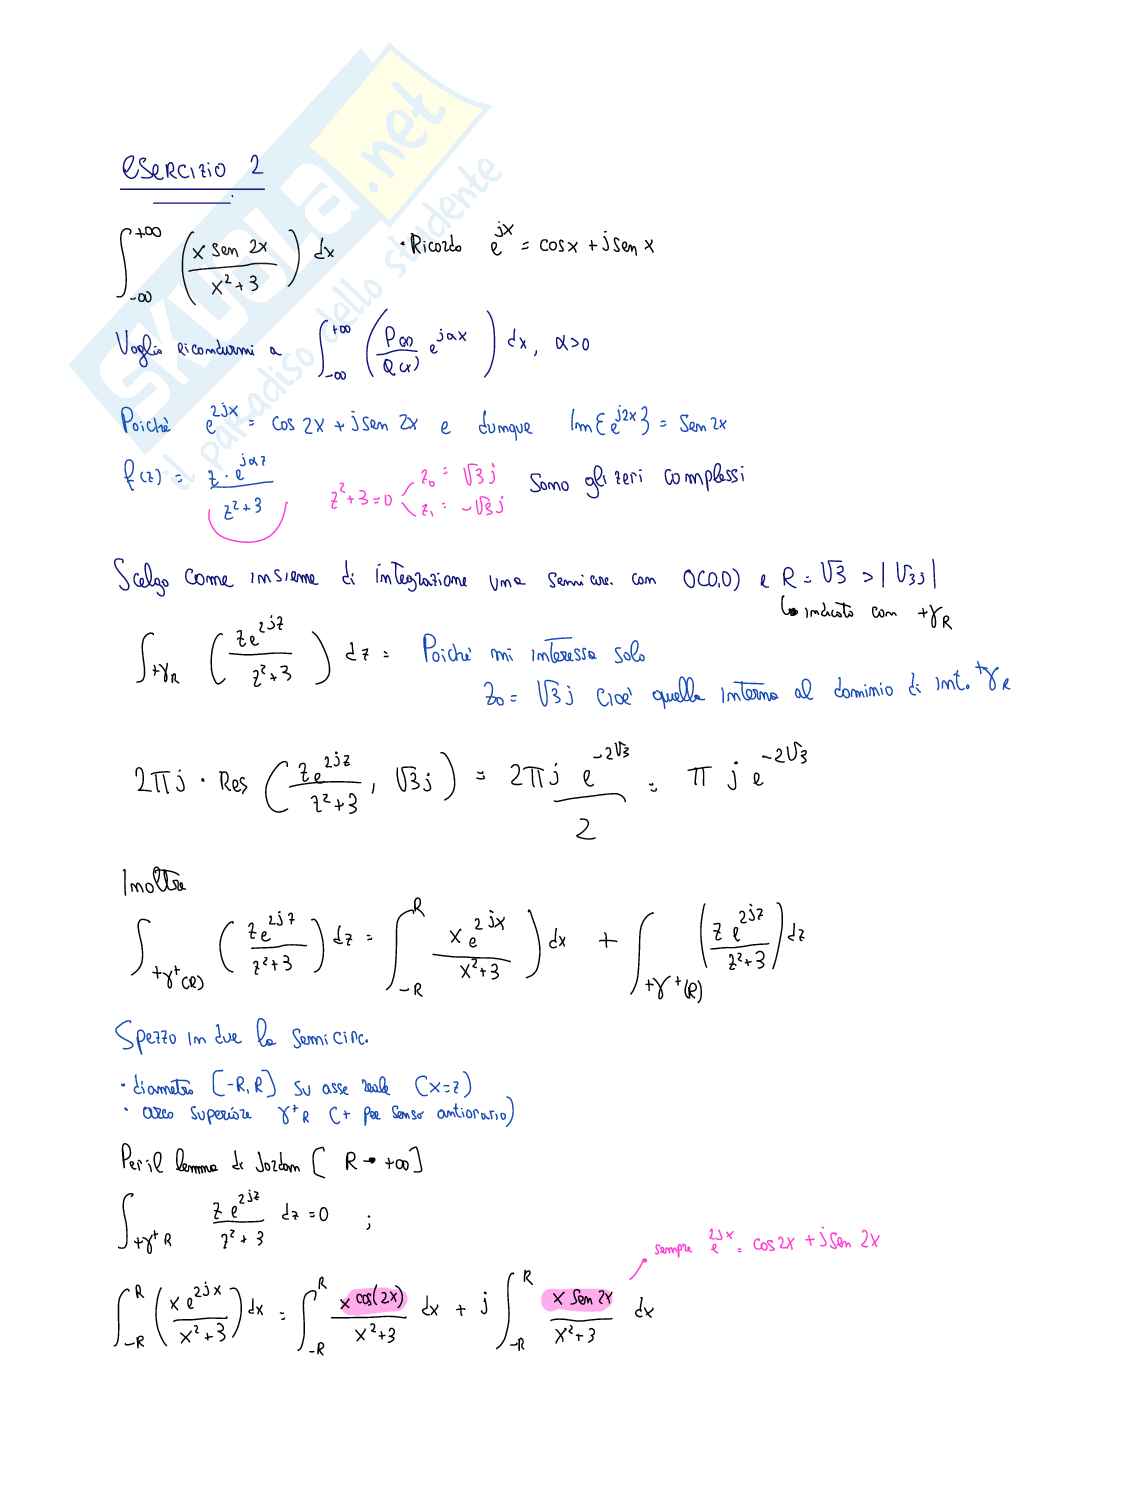 SKUOLA.net
il paradiso dello studente
esercizio 2
∫_{-∞}^{+∞} (x sen 2x / x²+3) dx · Ricordo e^{jx} = cos x + j sen x
Voglio ricondurmi a ∫_{-∞}^{+∞} (P(x)/Q(x) e^{jαx}) dx, α>0
Poiché e^{2jx} = cos 2x + j sen 2x e dunque Im{e^{j2x}} = sen 2x
f(z) = z · e^{jαz} / z²+3 z²+3=0 z₀ = √3j z₁ = -√3j sono gli zeri complessi
Scelgo come insieme di integrazione una semicirc. con O(0,0) e R = √3 > |√3j|
↳ indicato con +γ_R
∫_{+γ_R} (ze^{2jz} / z²+3) dz = Poiché mi interessa solo
z₀ = √3j cioè quella interna al dominio di int. +γ_R
2πj · Res (ze^{2jz} / z²+3, √3j) = 2πj e^{-2√3} / 2 = π j e^{-2√3}
Inoltre
∫_{+γ⁺(R)} (ze^{2jz} / z²+3) dz = ∫_{-R}^{R} x e^{2jx} / x²+3) dx + ∫_{+γ⁺(R)} (z e^{2jz} / z²+3) dz
Spezzo in due la semicirc.
· diametro [-R, R] su asse reale (x=z)
· arco superiore γ⁺R (+ per senso antiorario)
Per il lemma di Jordan [ R → +∞]
∫_{+γ⁺R} z e^{2jz} / z²+3 dz = 0 ;
sempre e^{2jx} = cos 2x + j sen 2x
∫_{-R}^{R} (x e^{2jx} / x²+3) dx = ∫_{-R}^{R} x cos(2x) / x²+3 dx + j ∫_{-R}^{R} x sen 2x / x²+3 dx